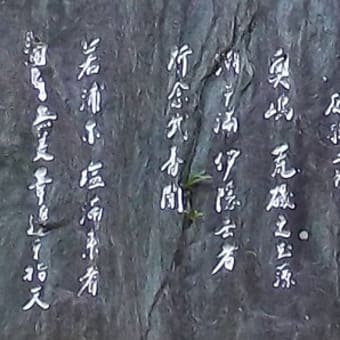 奥嶋 荒磯之玉藻
潮干満 伊隠去者
所念武香聞
若浦尓 塩満来者
滷乎無美 葦邊乎指天